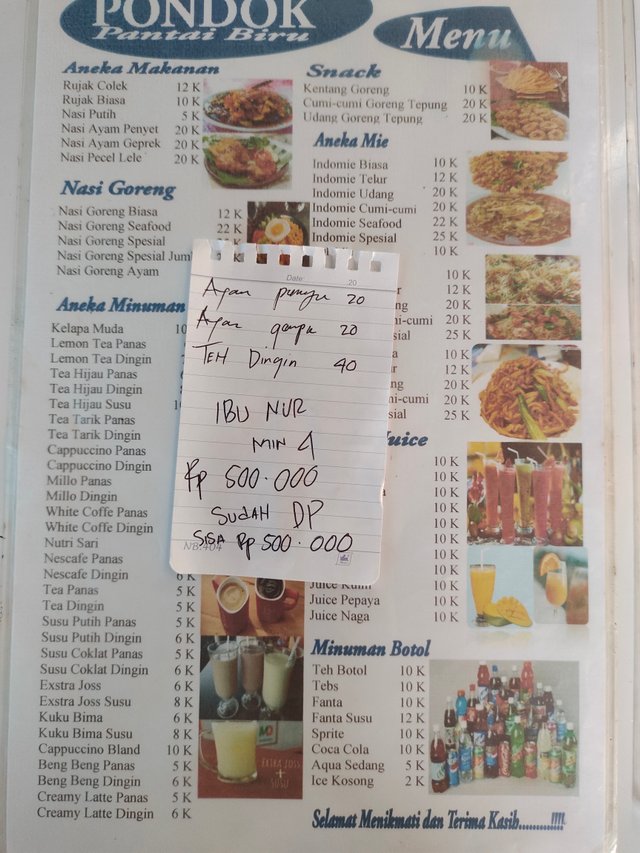 PONDOK
Pantai Biru
Menu
Aneka Makanan
Rujak Colek 12 K
Rujak Biasa 10 K
Nasi Putih 5 K
Nasi Ayam Penyet 20 K
Nasi Ayam Geprek 20 K
Nasi Pecel Lele 20 K
Nasi Goreng
Nasi Goreng Biasa 12 K
Nasi Goreng Seafood 22 K
Nasi Goreng Spesial
Nasi Goreng Spesial Juml
Nasi Goreng Ayam
Aneka Minuman
Kelapa Muda 10
Lemon Tea Panas
Lemon Tea Dingin
Tea Hijau Panas
Tea Hijau Dingin
Tea Hijau Susu
Tea Tarik Panas
Tea Tarik Dingin
Cappucino Panas
Cappucino Dingin
Millo Panas
Millo Dingin
White Coffe Panas
White Coffe Dingin
Nutri Sari
Nescafe Panas
Nescafe Dingin 6 K
Tea Panas 5 K
Tea Dingin 5 K
Susu Putih Panas 5 K
Susu Putih Dingin 6 K
Susu Coklat Panas 5 K
Susu Coklat Dingin 6 K
Exstra Joss 6 K
Exstra Joss Susu 8 K
Kuku Bima 6 K
Kuku Bima Susu 8 K
Cappuccino Bland 10 K
Beng Beng Panas 5 K
Beng Beng Dingin 6 K
Creamy Latte Panas 5 K
Creamy Latte Dingin 6 K
Snack
Kentang Goreng 10 K
Cumi-cumi Goreng Tepung 20 K
Udang Goreng Tepung 20 K
Aneka Mie
Indomie Biasa 10 K
Indomie Telur 12 K
Indomie Udang 20 K
Indomie Cumi-cumi 20 K
Indomie Seafood 22 K
Indomie Spesial 25 K
10 K
10 K
12 K
20 K
mi-cumi 20 K
sial 25 K
10 K
12 K
20 K
mi-cumi 20 K
sial 25 K
uice
10 K
10 K
10 K
10 K
10 K
10 K
10 K
10 K
Juice Pepaya 10 K
Juice Naga 10 K
Minuman Botol
Teh Botol 10 K
Tebs 10 K
Fanta 10 K
Fanta Susu 12 K
Sprite 10 K
Coca Cola 10 K
Aqua Sedang 5 K
Ice Kosong 2 K
EXTRA JOSS
+
SUSU
Selamat Menikmati dan Terima Kasih...........!!!!
Date: 20
Ayam 20
Ayam 20
TEH Dingin 40
IBU NUR
MIN 4
Rp 500.000
SUDAH DP
SISA Rp 500.000